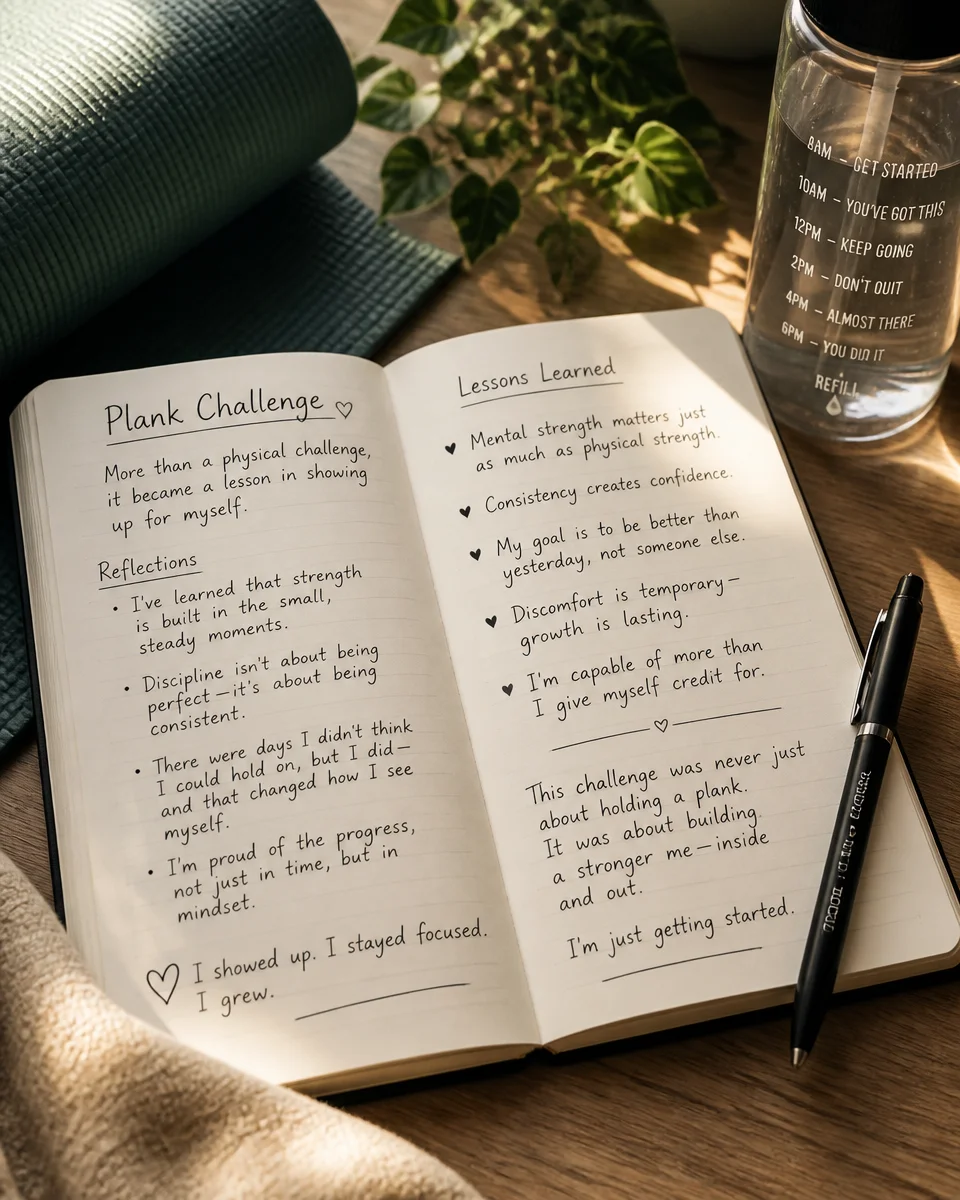 Plank Challenge
More than a physical challenge,
it became a lesson in showing
up for myself.
Reflections
• I've learned that strength
is built in the small,
steady moments.
• Discipline isn't about being
perfect—it's about being
consistent.
• There were days I didn't think
I could hold on, but I did—
and that changed how I see
myself.
• I'm proud of the progress,
not just in time, but in
mindset.
I showed up. I stayed focused.
I grew.
Lessons Learned
Mental strength matters just
as much as physical strength.
Consistency creates confidence.
My goal is to be better than
yesterday, not someone else.
Discomfort is temporary—
growth is lasting.
I'm capable of more than
I give myself credit for.
This challenge was never just
about holding a plank.
It was about building
a stronger me—inside
and out.
I'm just getting started.
8AM – GET STARTED
10AM – YOU'VE GOT THIS
12PM – KEEP GOING
2PM – DON'T QUIT
4PM – ALMOST THERE
6PM – YOU DID IT
REFILL